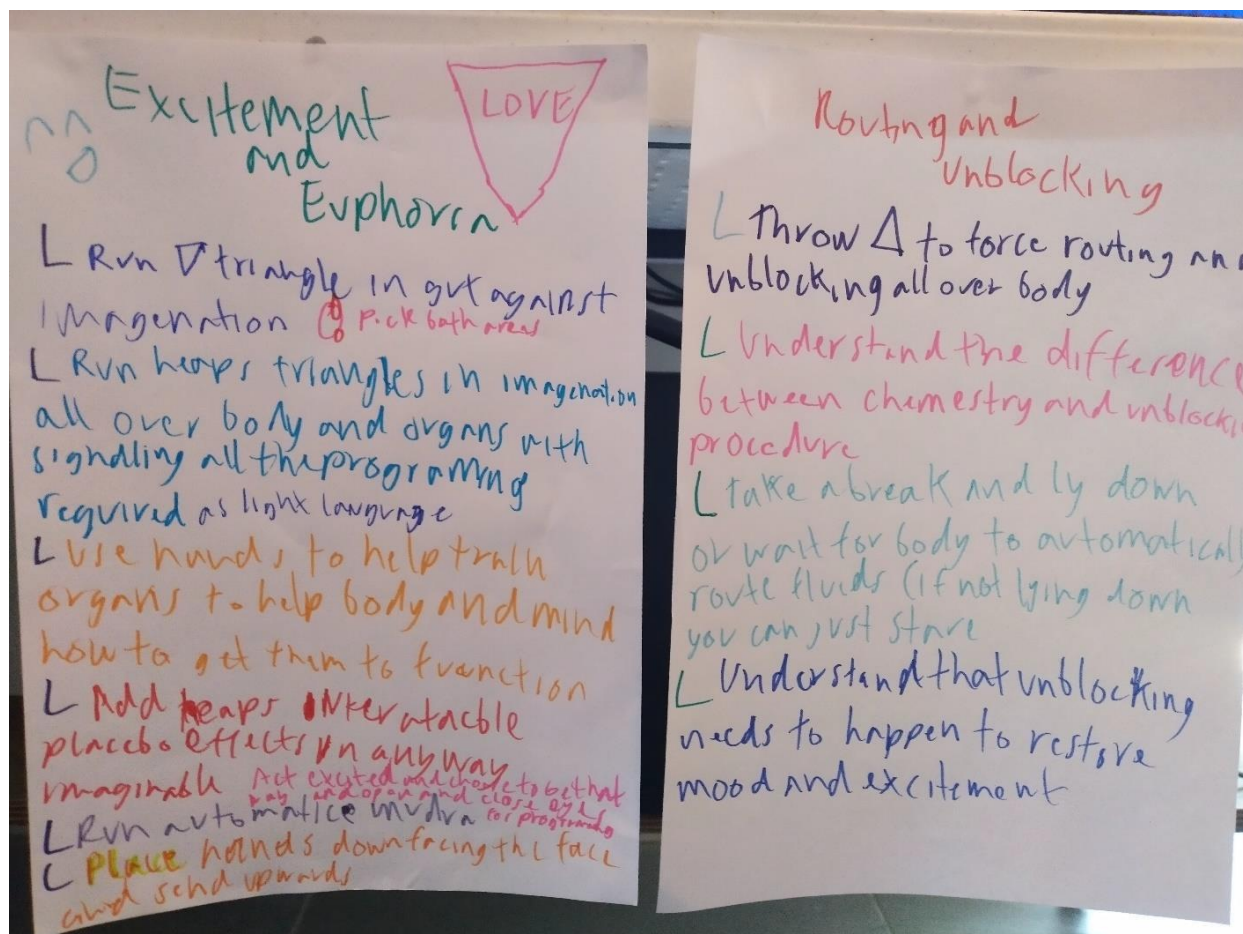 Excitement
and
Euphoria
LOVE
L Run ▽ triangle in gut against
imagenation pick both areas
L Run heaps triangles in imagenation
all over body and organs with
signalling all the programing
required as light language
L Use hands to help train
organs to help body and mind
how to get them to function
L Add heaps
placebo effects in anyway
imaginable Act excited and chose to be that
way and open and close eyes
L Run automatice mudra for programing
L Place hands down facing the face
and send upwards
Routing and
Unblocking
L Throw △ to force routing an
unblocking all over body
L Understand the difference
between chemestry and unblocki
procedure
L take a break and ly down
or wait for body to automatical
route fluids (if not lying down
you can just stare
L Understand that unblocking
needs to happen to restore
mood and excitement